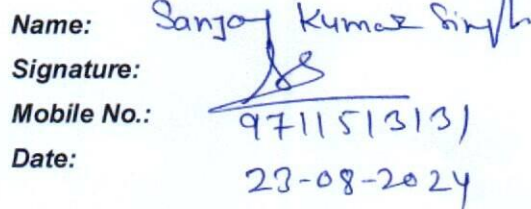 Name: Sanjay Kumar Singh
Signature:
Mobile No.: 9711513131
Date: 23-08-2024